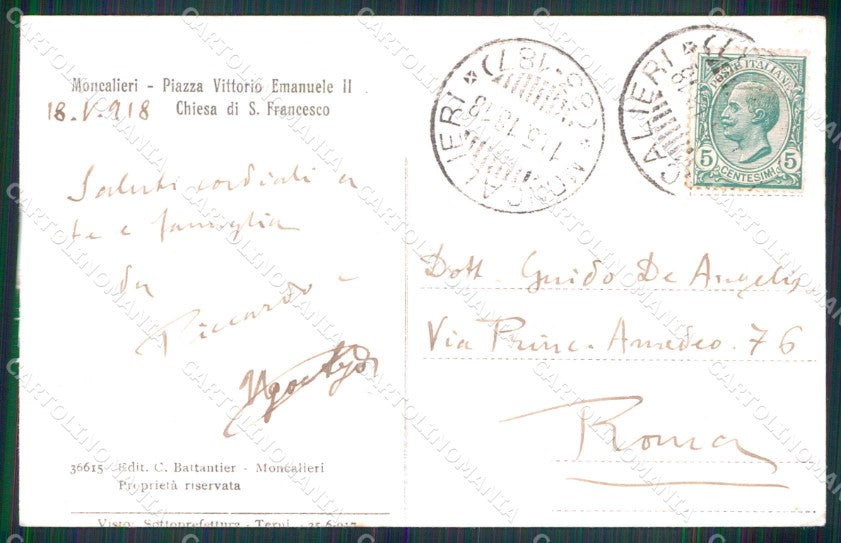 Moncalieri - Piazza Vittorio Emanuele II
Chiesa di S. Francesco
18.V.918
Saluti cordiali a
te e famiglia
da
Riccardo
36615 Edit. C. Battantier - Moncalieri
Proprietà riservata
Visto: Sottoprefettura - Terni
MONCALIERI
CALIERI
POSTE ITALIANE
5 5
CENTESIMI
Dott. Guido De Angelis
Via Princ. Amedeo. 76
Roma
CARTOLINOMANIA